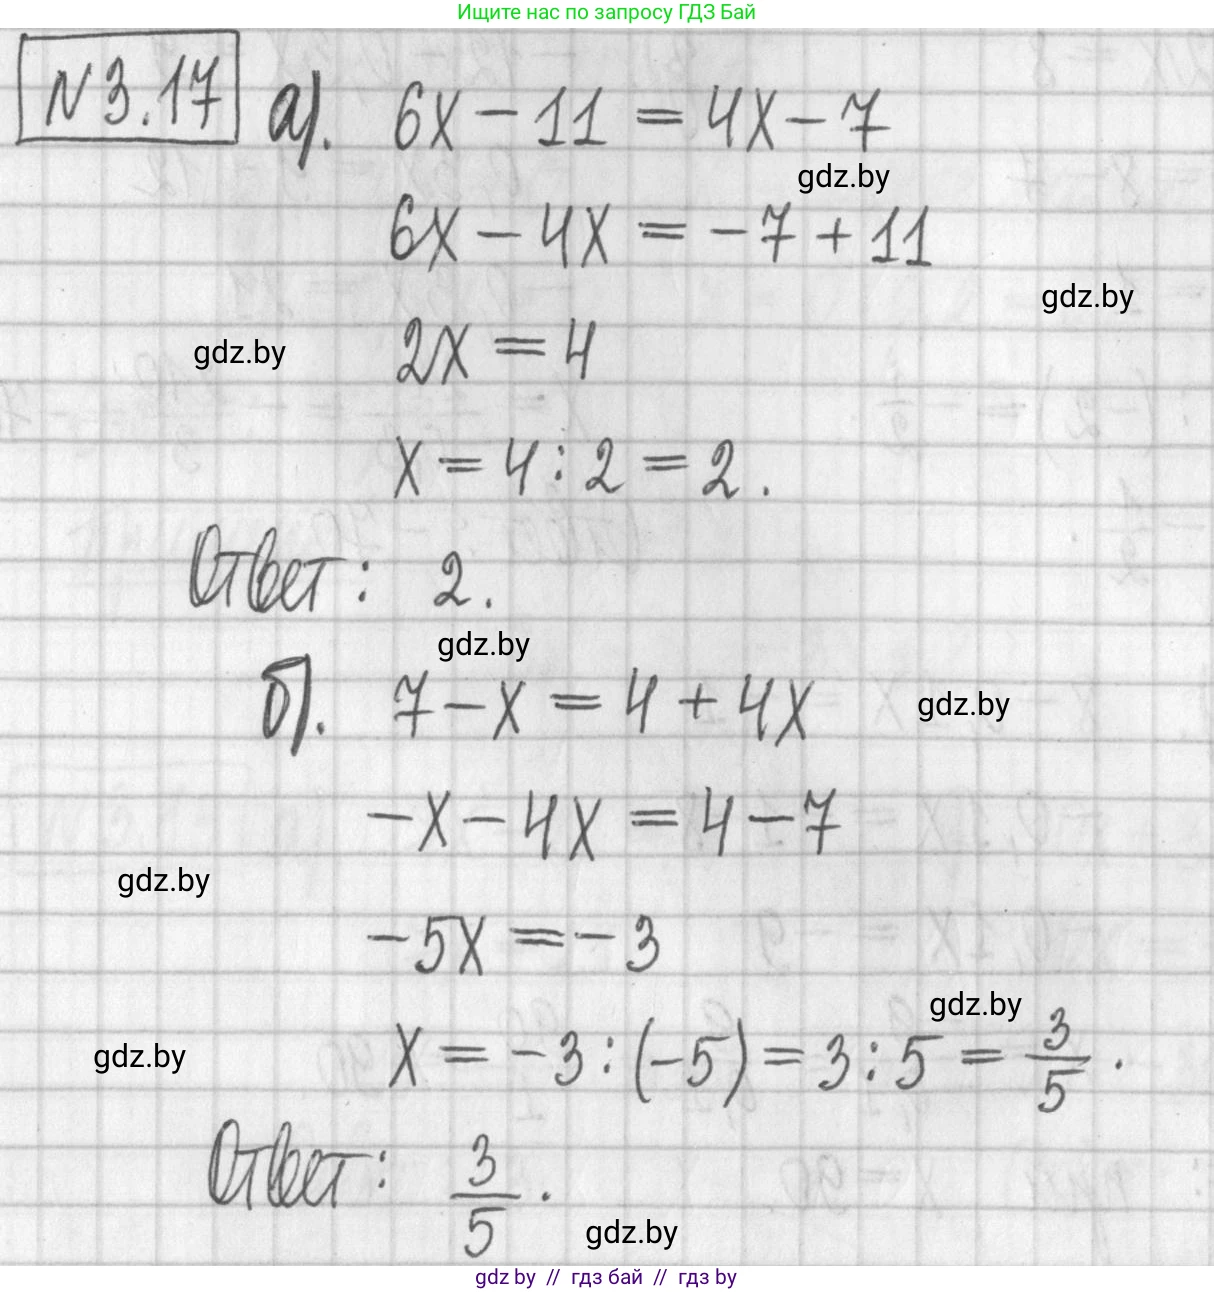 Ищите нас по запросу ГДЗ Бай
N 3.17 а). 6x - 11 = 4x - 7
gdz.by
6x - 4x = -7 + 11
gdz.by
2x = 4
gdz.by
x = 4 : 2 = 2.
Ответ: 2.
gdz.by
б). 7 - x = 4 + 4x
gdz.by
-x - 4x = 4 - 7
gdz.by
-5x = -3
gdz.by
x = -3 : (-5) = 3 : 5 = 3/5.
gdz.by
Ответ: 3/5.
gdz.by
gdz by // гдз бай // гдз by